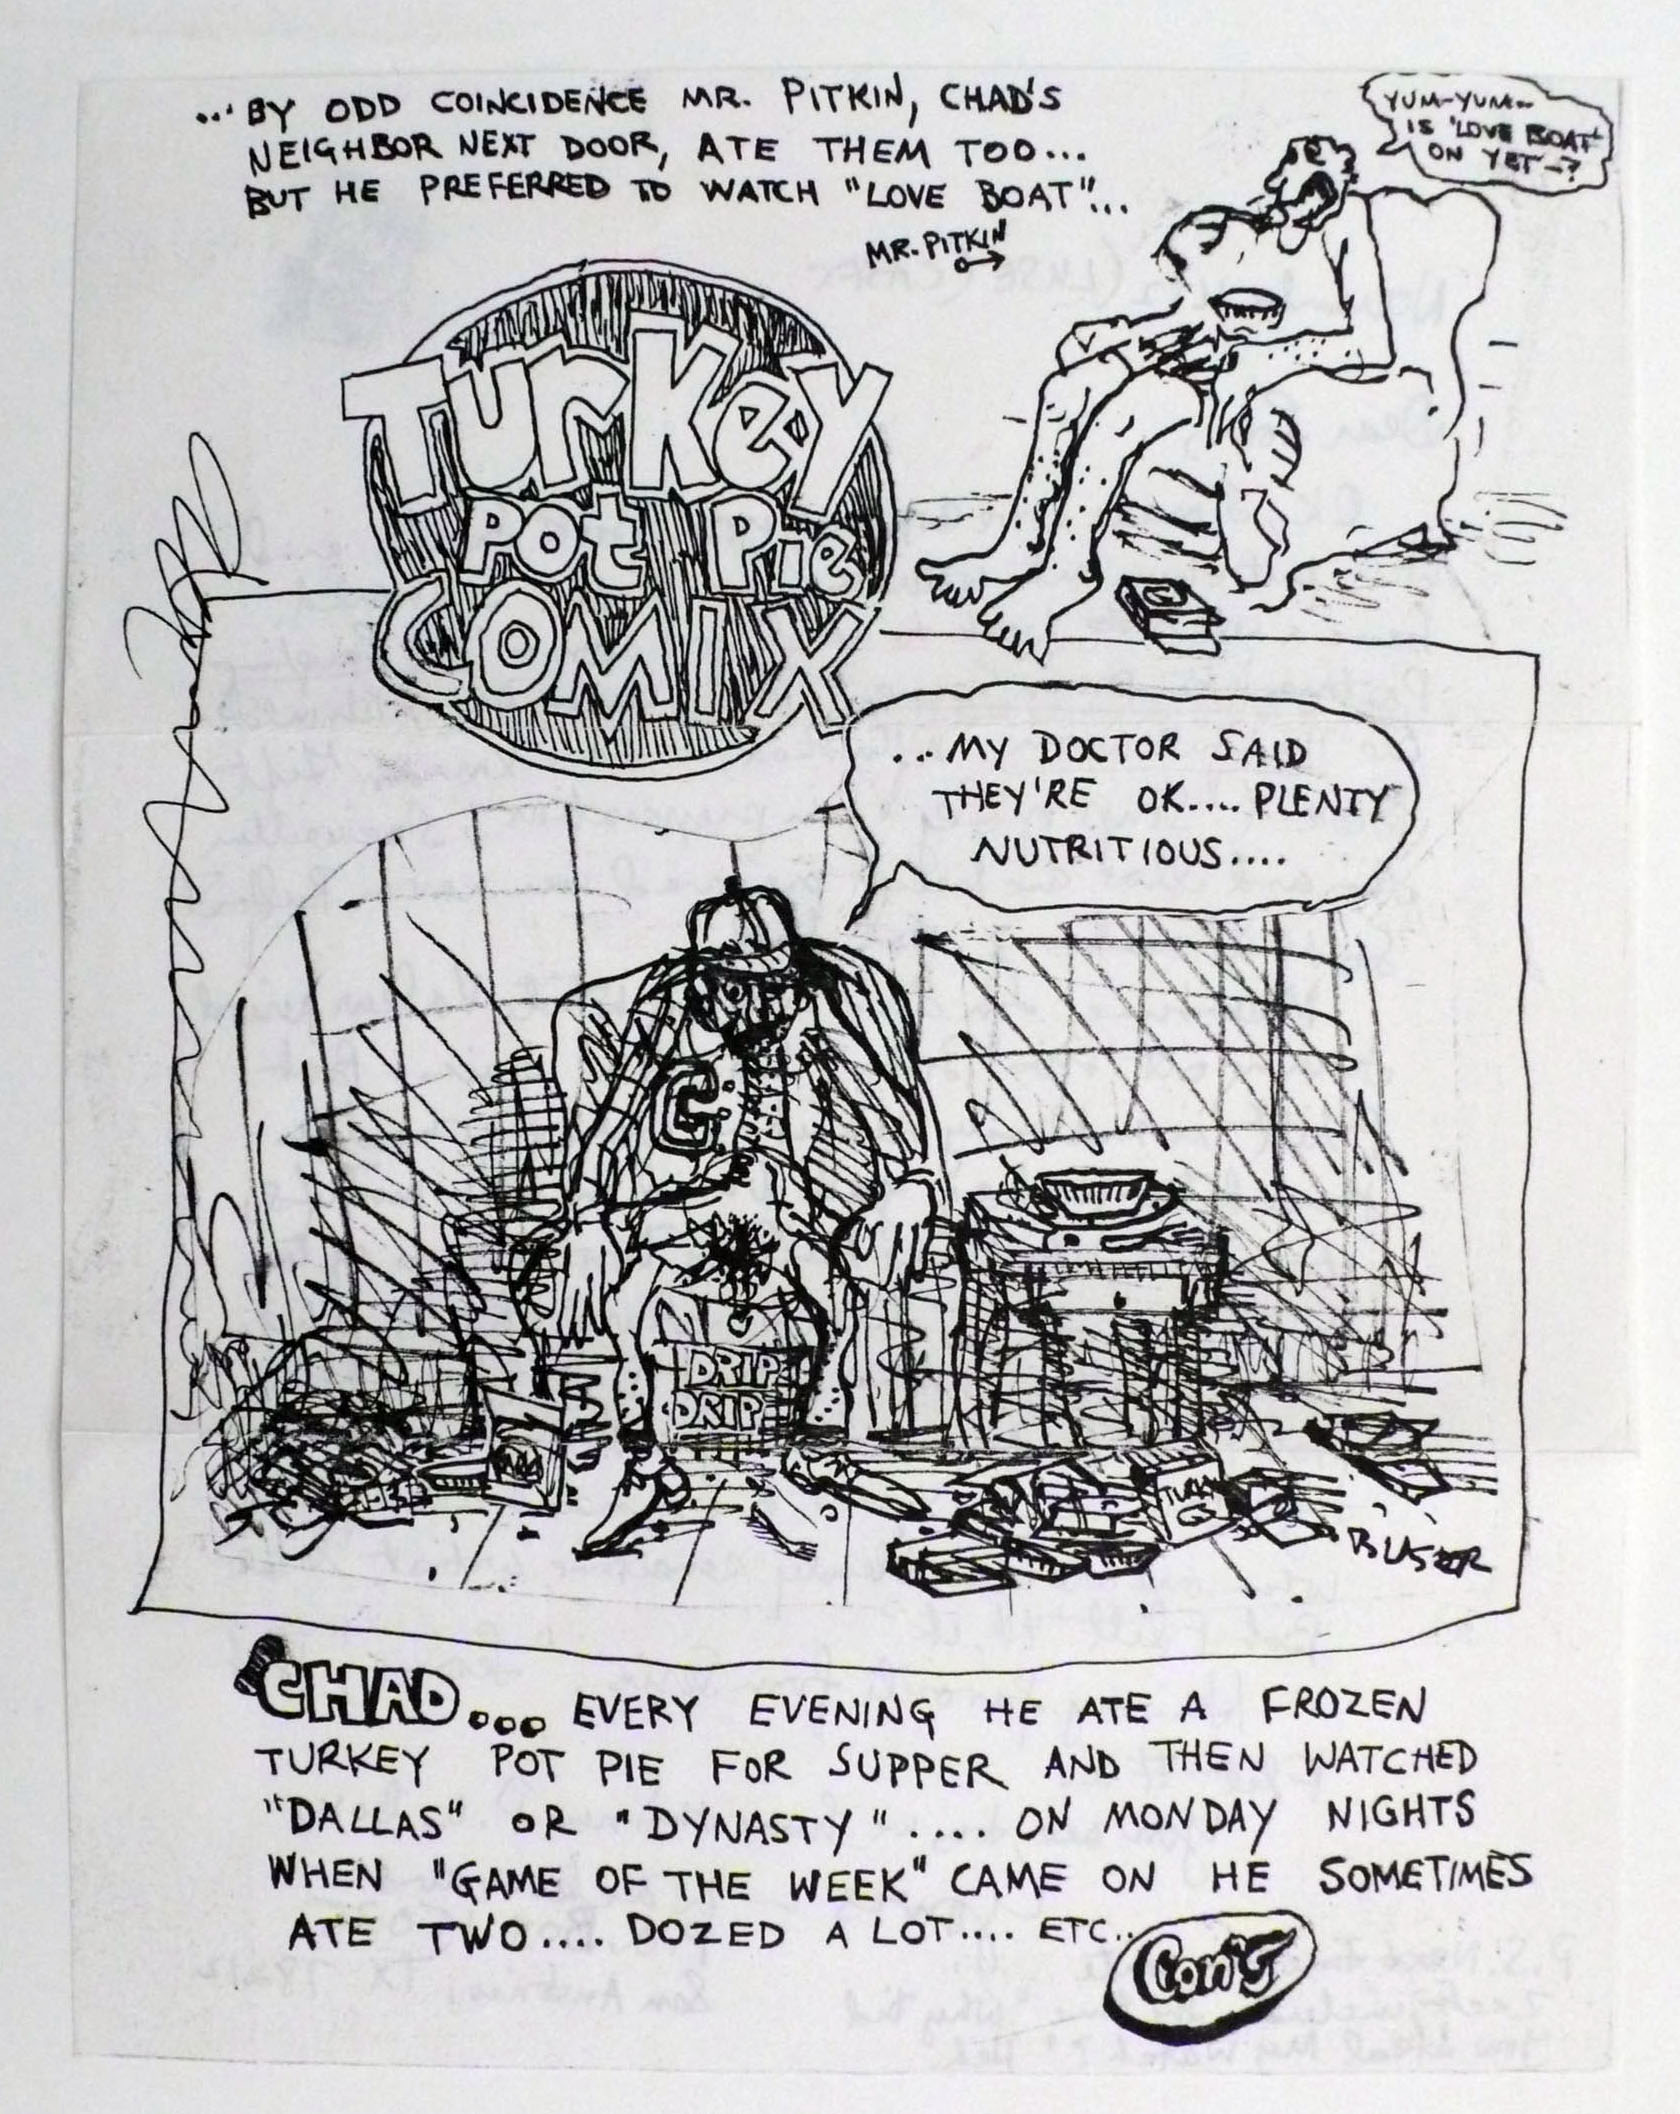 ... BY ODD COINCIDENCE MR. PITKIN, CHAD'S
NEIGHBOR NEXT DOOR, ATE THEM TOO...
BUT HE PREFERRED TO WATCH "LOVE BOAT"...
YUM-YUM-
IS 'LOVE BOAT'
ON YET-?
MR. PITKIN
TURKEY
POT PIE
COMIX
... MY DOCTOR SAID
THEY'RE OK.... PLENTY
NUTRITIOUS....
C
DRIP
DRIP
BUSTER
CHAD... EVERY EVENING HE ATE A FROZEN
TURKEY POT PIE FOR SUPPER AND THEN WATCHED
"DALLAS" OR "DYNASTY".... ON MONDAY NIGHTS
WHEN "GAME OF THE WEEK" CAME ON HE SOMETIMES
ATE TWO.... DOZED A LOT.... ETC..
Con'T